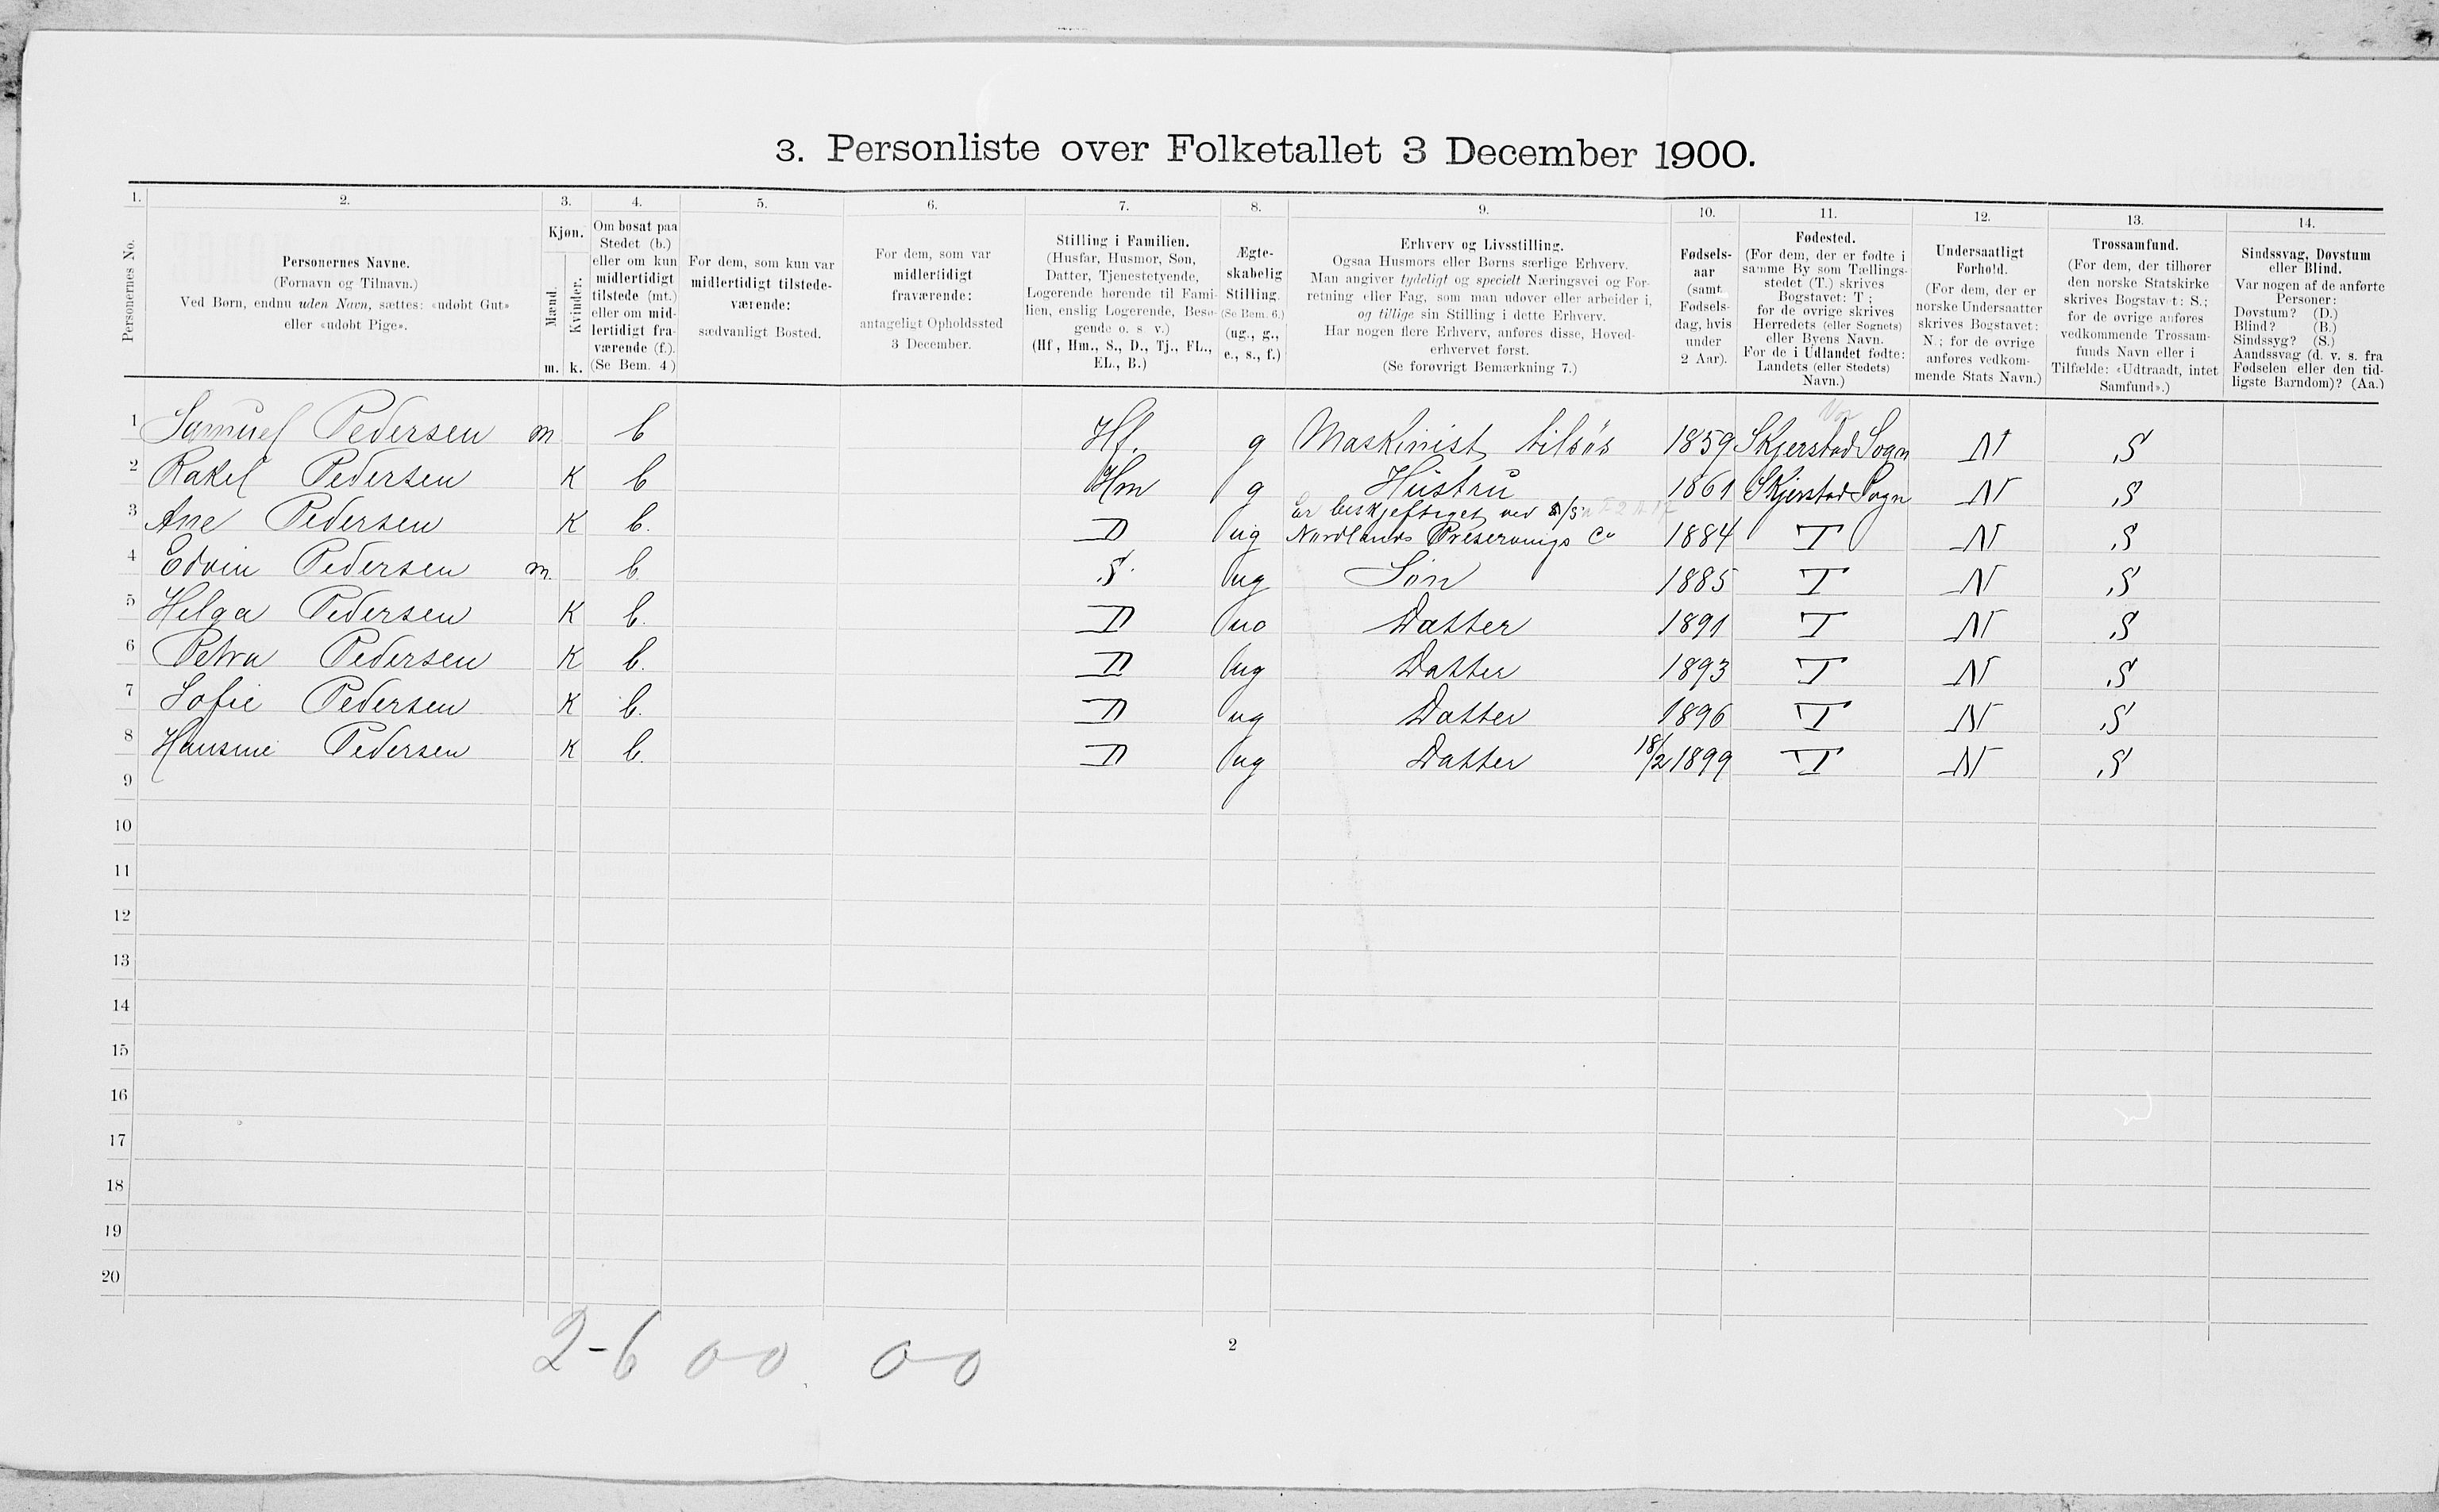 3. Personliste over Folketallet 3 December 1900.
1. 2. 3. 4. 5. 6. 7. 8. 9. 10. 11. 12. 13. 14.
Personernes No.
Personernes Navne.
(Fornavn og Tilnavn.)
Ved Børn, endnu uden Navn, sættes: «udøbt Gut»
eller «udøbt Pige».
Kjøn.
Mænd.
Kvinder.
m. k.
Om bosat paa
Stedet (b.)
eller om kun
midlertidigt
tilstede (mt.)
eller om mid-
lertidigt fra-
værende (f.).
(Se Bem. 4)
For dem, som kun var
midlertidigt tilstede-
værende:
sædvanligt Bosted.
For dem, som var
midlertidigt
fraværende:
antageligt Opholdssted
3 December.
Stilling i Familien.
(Husfar, Husmor, Søn,
Datter, Tjenestetyende,
Logerende hørende til Fami-
lien, enslig Logerende, Besø-
gende o. s. v.)
(Hf., Hm., S., D., Tj., FL.,
EL., B.)
Ægte-
skabelig
Stilling.
(Se Bem. 6.)
(ug., g.,
e., s., f.)
Erhverv og Livsstilling.
Ogsaa Husmors eller Børns særlige Erhverv.
Man angiver tydeligt og specielt Næringsvei og For-
retning eller Fag, som man udøver eller arbeider i,
og tillige sin Stilling i dette Erhverv.
Har nogen flere Erhverv, anføres disse, Hoved-
erhvervet først.
(Se forøvrigt Bemærkning 7.)
Fødsels-
aar
(samt
Fødsels-
dag, hvis
under
2 Aar).
Fødested.
(For dem, der er fødte i
samme By som Tællings-
stedet (T.) skrives
Bogstavet: T;
for de øvrige skrives
Herredets (eller Sognets)
eller Byens Navn.
For de i Udlandet fødte:
Landets (eller Stedets)
Navn.)
Undersaatligt
Forhold.
(For dem, der er
norske Undersaatter
skrives Bogstavet:
N.; for de øvrige
anføres vedkom-
mende Stats Navn.)
Trossamfund.
(For dem, der tilhører
den norske Statskirke
skrives Bogstavet: S.;
for de øvrige anføres
vedkommende Trossam-
funds Navn eller i
Tilfælde: «Udtraadt, intet
Samfund».)
Sindssvag, Døvstum
eller Blind.
Var nogen af de anførte
Personer:
Døvstum? (D.)
Blind? (B.)
Sindssyg? (S.)
Aandssvag (d. v. s. fra
Fødselen eller den tid-
ligste Barndom)? (Aa.)
1 Samuel Pedersen m b Hf. g Maskinist tilsøs 1859 Skjerstad Sogn N S
2 Rakel Pedersen K b Hm g Hustru 1861 Skjerstad Sogn N S
Er beskjeftiget ved
3 Ane Pedersen K b. D ug Nordlands Preservings Co 1884 T N S
4 Edvin Pedersen m. b. S. ug Søn 1885 T N S
5 Helga Pedersen K b. D Datter 1891 T N S
6 Petra Pedersen K b. D ug Datter 1893 T N S
7 Sofie Pedersen K b. D ug Datter 1896 T N S
8 Hansine Pedersen K b. D ug Datter 18/2 1899 T N S
9
10
11
12
13
14
15
16
17
18
19
20
2-6 0-0 0-0
2